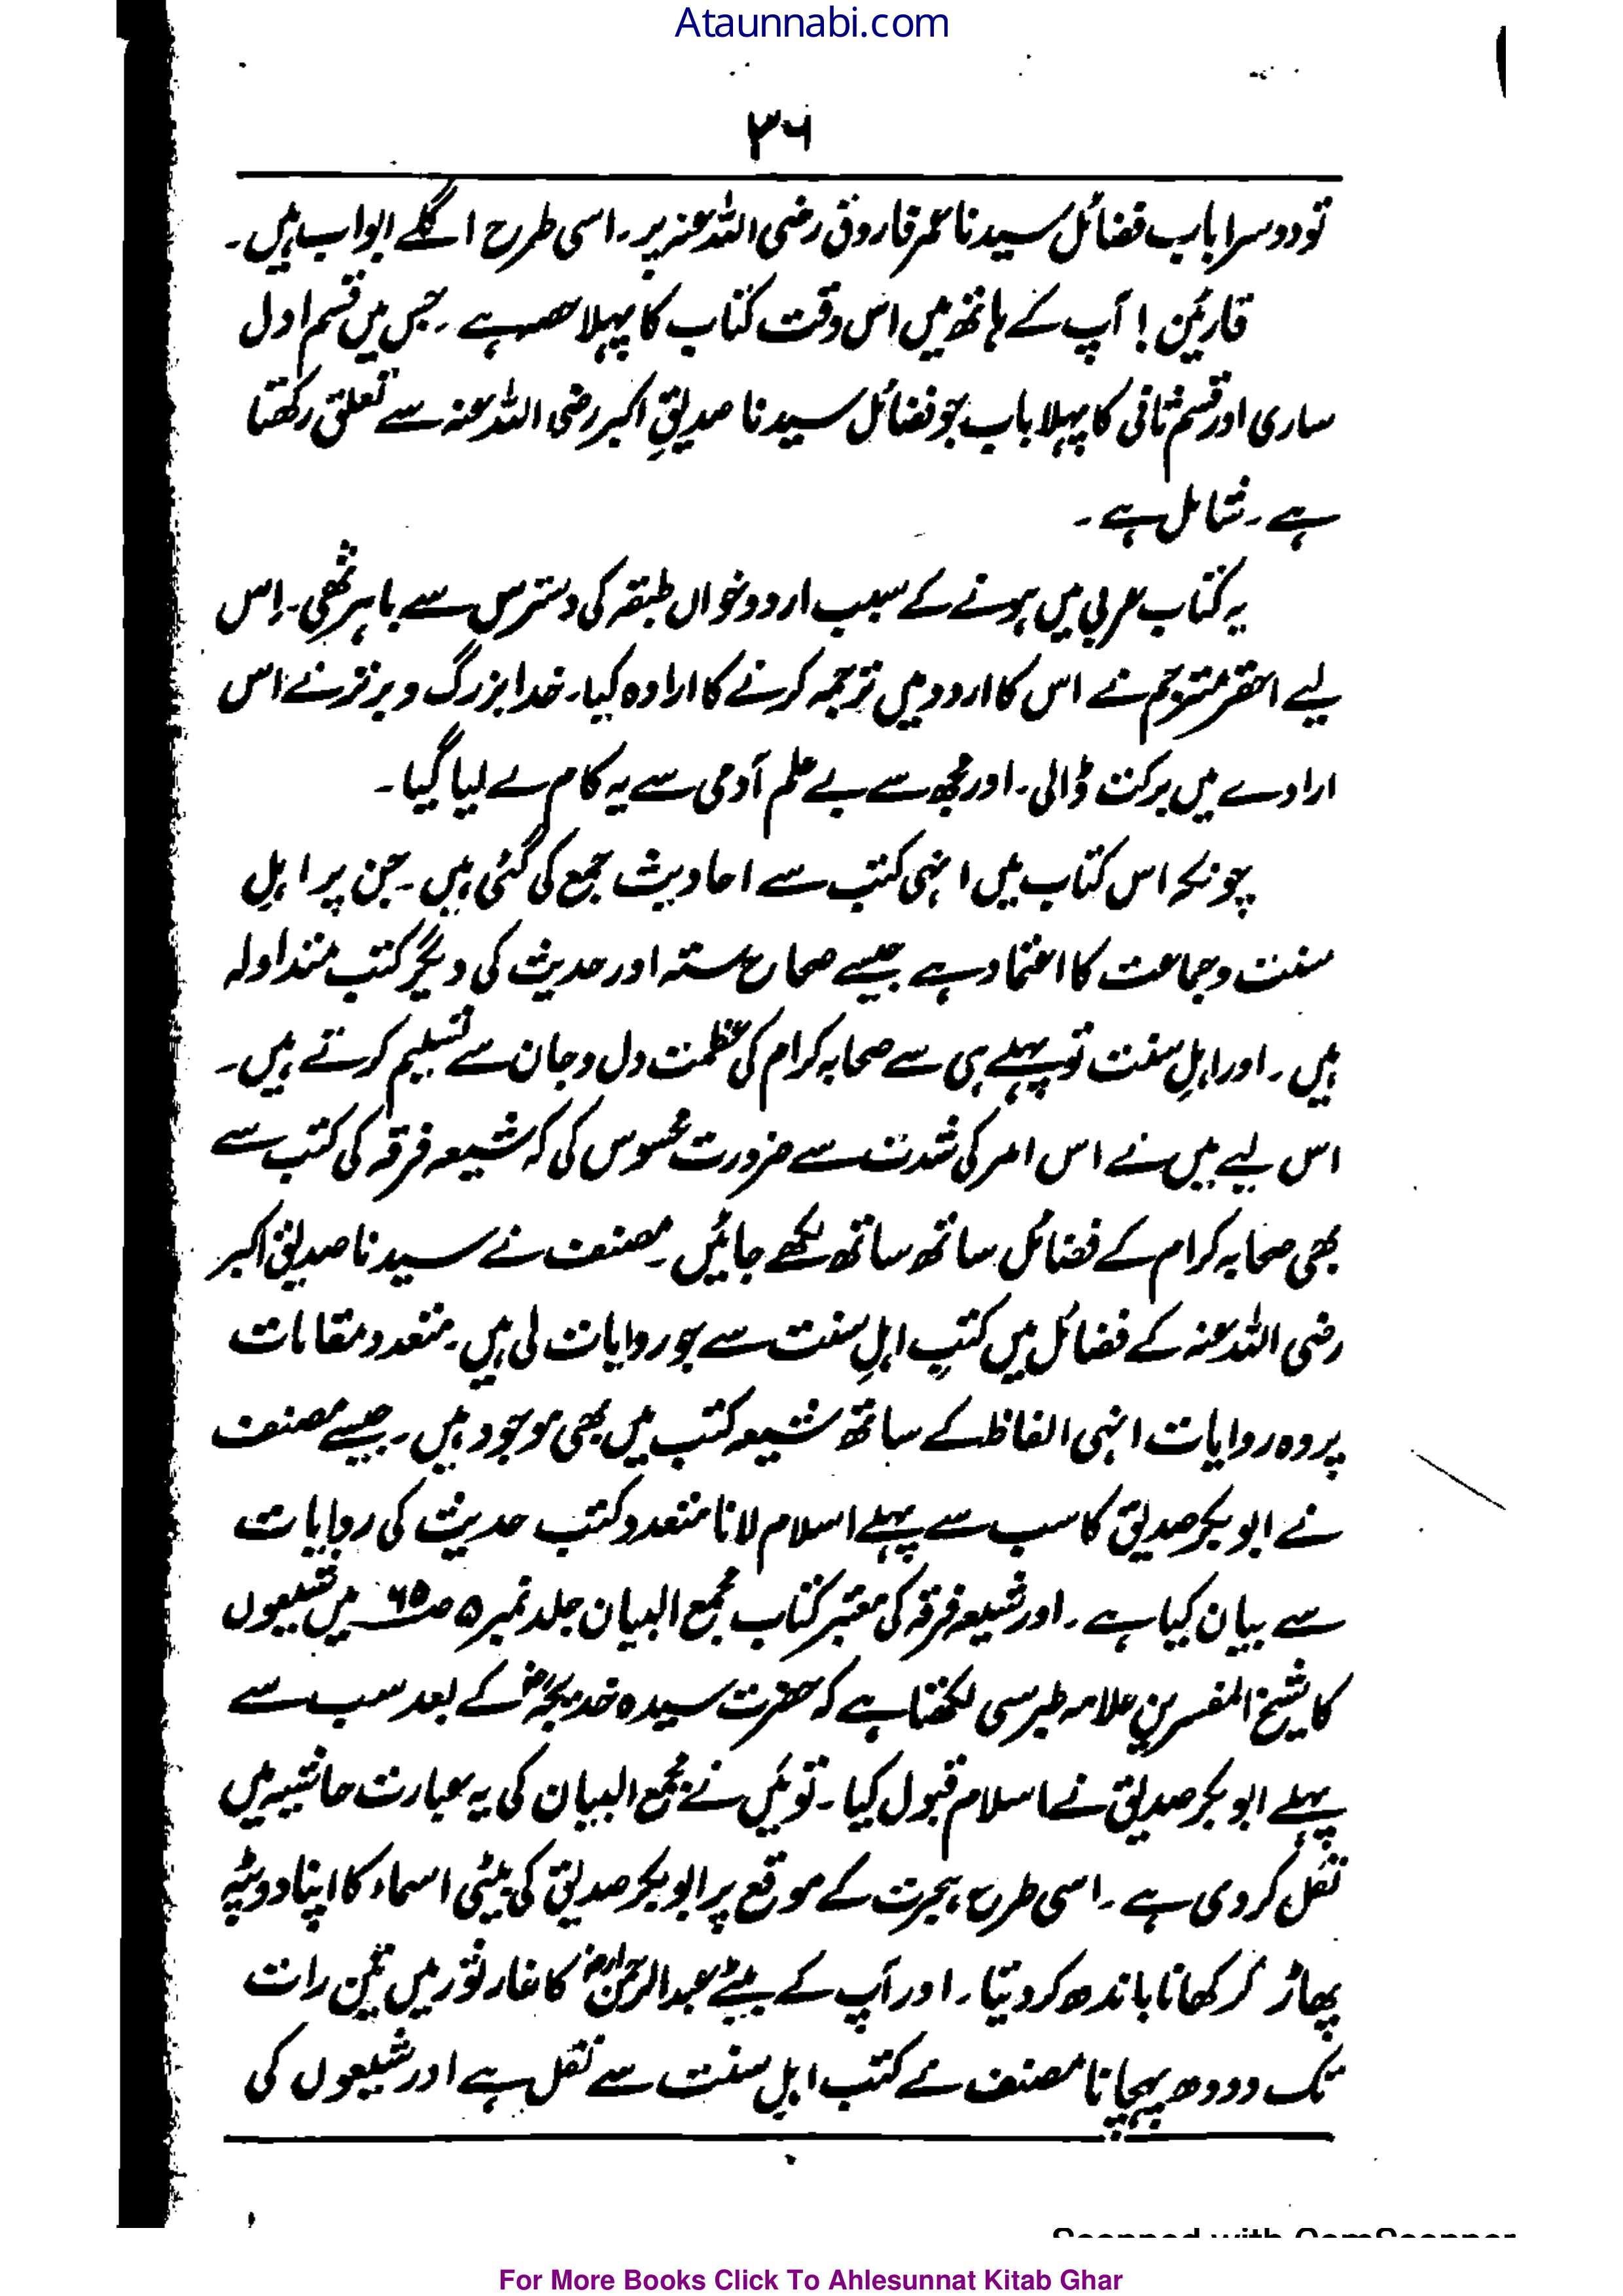 Ataunnabi.com
۳۶
تو دوسرا باب فضائل سیدنا عمر فاروق رضی اللہ عنہ پر۔ اسی طرح اگلے ابواب ہیں۔
قارئین! آپ کے ہاتھ میں اس وقت کتاب کا پہلا حصہ ہے۔ جس میں قسم اول
ساری اور قسم ثانی کا پہلا باب جو فضائل سیدنا صدیقِ اکبر رضی اللہ عنہ سے تعلق رکھتا
ہے۔ شامل ہے۔
یہ کتاب عربی میں ہونے کے سبب اردو خواں طبقہ کی دسترس سے باہر تھی۔ اِس
لیے احقر مترجم نے اس کا اردو میں ترجمہ کرنے کا ارادہ کیا۔ خدا بزرگ و برتر نے اس
ارادے میں برکت ڈالی۔ اور مجھ سے بے علم آدمی سے یہ کام لے لیا گیا۔
چونکہ اس کتاب میں انہی کتب سے احادیث جمع کی گئی ہیں۔ جن پر اہلِ
سنت و جماعت کا اعتماد ہے جیسے صحاح ستہ اور حدیث کی دیگر کتب متداولہ
ہیں۔ اور اہلِ سنت تو پہلے ہی سے صحابہ کرام کی عظمت دل و جان سے تسلیم کرتے ہیں۔
اس لیے میں نے اس امر کی شدت سے ضرورت محسوس کی کہ شیعہ فرقہ کی کتب سے
بھی صحابہ کرام کے فضائل ساتھ ساتھ لکھے جائیں۔ مصنف نے سیدنا صدیق اکبر
رضی اللہ عنہ کے فضائل میں کتبِ اہلِ سنت سے جو روایات لی ہیں۔ متعدد مقامات
پر وہ روایات انہی الفاظ کے ساتھ شیعہ کتب میں بھی موجود ہیں۔ جیسے مصنف
نے ابو بکر صدیق کا سب سے پہلے اسلام لانا متعدد کتب حدیث کی روایات
سے بیان کیا ہے۔ اور شیعہ فرقہ کی معتبر کتاب مجمع البیان جلد نمبر ۵ صـ ۶۵ میں شیعوں
کا شیخ المفسرین علامہ طبرسی لکھتا ہے کہ حضرت سیدہ خدیجہؓ کے بعد سب سے
پہلے ابو بکر صدیق نے اسلام قبول کیا۔ تو میں نے مجمع البیان کی یہ عبارت حاشیہ میں
نقل کر دی ہے۔ اسی طرح ہجرت کے موقع پر ابو بکر صدیق کی بیٹی اسماء کا اپنا دوپٹہ
پھاڑ کر کھانا باندھ کر دینا۔ اور آپ کے بیٹے عبدالرحمنؓ کا غار ثور میں تین رات
تک دودھ پہچانا مصنف نے کتب اہل سنت سے نقل ہے اور شیعوں کی
For More Books Click To Ahlesunnat Kitab Ghar